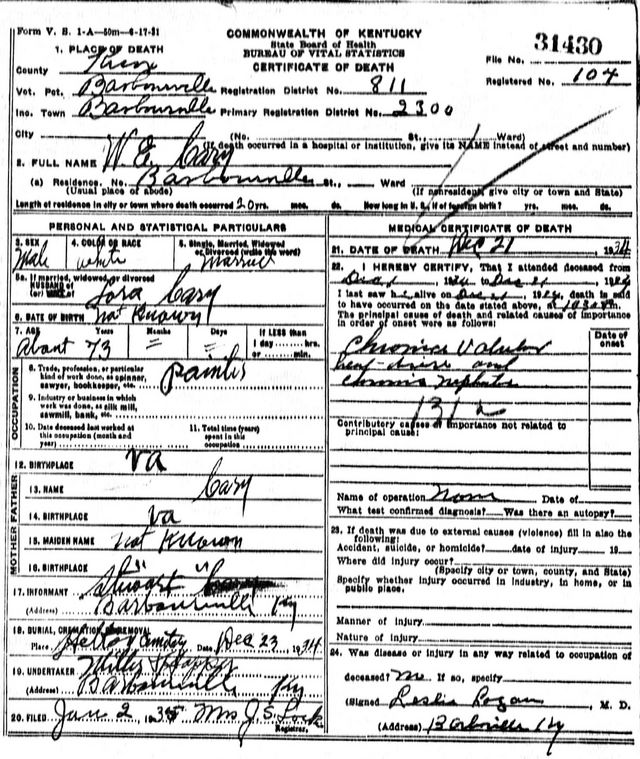 Form V. S. 1-A—50m—6-17-31
COMMONWEALTH OF KENTUCKY
State Board of Health
BUREAU OF VITAL STATISTICS
CERTIFICATE OF DEATH
31430
File No.
Registered No. 104
1. PLACE OF DEATH
County Knox
Vot. Pct. Barbourville Registration District No. 811
Inc. Town Barbourville Primary Registration District No. 2300
City (No. St., Ward)
(If death occurred in a hospital or institution, give its NAME instead of street and number)
2. FULL NAME W E Cary
(a) Residence, No. Barbourville St., Ward
(Usual place of abode) (If nonresident, give city or town and State)
Length of residence in city or town where death occurred 20 yrs. mos. ds. How long in U. S., if of foreign birth? yrs. mos. ds.
PERSONAL AND STATISTICAL PARTICULARS
3. SEX 4. COLOR OR RACE 5. Single, Married, Widowed or Divorced (write the word)
Male White Married
5a. If married, widowed or divorced
HUSBAND of
(or) WIFE of Cary
6. DATE OF BIRTH Not Known
7. AGE Years Months Days If LESS than 1 day hrs. or min.
About 73
OCCUPATION
8. Trade, profession, or particular kind of work done, as spinner, sawyer, bookkeeper, etc. painter
9. Industry or business in which work was done, as silk mill, sawmill, bank, etc.
10. Date deceased last worked at this occupation (month and year)
11. Total time (years) spent in this occupation
12. BIRTHPLACE Va
FATHER
13. NAME Cary
14. BIRTHPLACE Va
MOTHER
15. MAIDEN NAME Not Known
16. BIRTHPLACE " "
17. INFORMANT Stewart
(Address) Barbourville Ky
18. BURIAL, CREMATION OR REMOVAL
Place Cemetery Date Dec 23, 1934
19. UNDERTAKER
(Address) Barbourville Ky
20. FILED Jan 2 1935 Mrs J. S. Lock
Registrar.
MEDICAL CERTIFICATE OF DEATH
21. DATE OF DEATH Dec 21 1934
22. I HEREBY CERTIFY, That I attended deceased from
Dec 1934 to Dec 21 1934
I last saw h alive on Dec 1934, death is said
to have occurred on the date stated above, at m.
The principal cause of death and related causes of importance in order of onset were as follows:
Date of onset
Chronic Valvular
and
Chronic Nephritis
131
Contributory causes of importance not related to principal cause:
Name of operation None Date of
What test confirmed diagnosis? Was there an autopsy?
23. If death was due to external causes (violence) fill in also the following:
Accident, suicide, or homicide? date of injury 19
Where did injury occur?
(Specify city or town, county, and State)
Specify whether injury occurred in industry, in home, or in public place.
Manner of injury
Nature of injury
24. Was disease or injury in any way related to occupation of
deceased? No If so, specify
(Signed Leslie Logan, M. D.
(Address) Ky